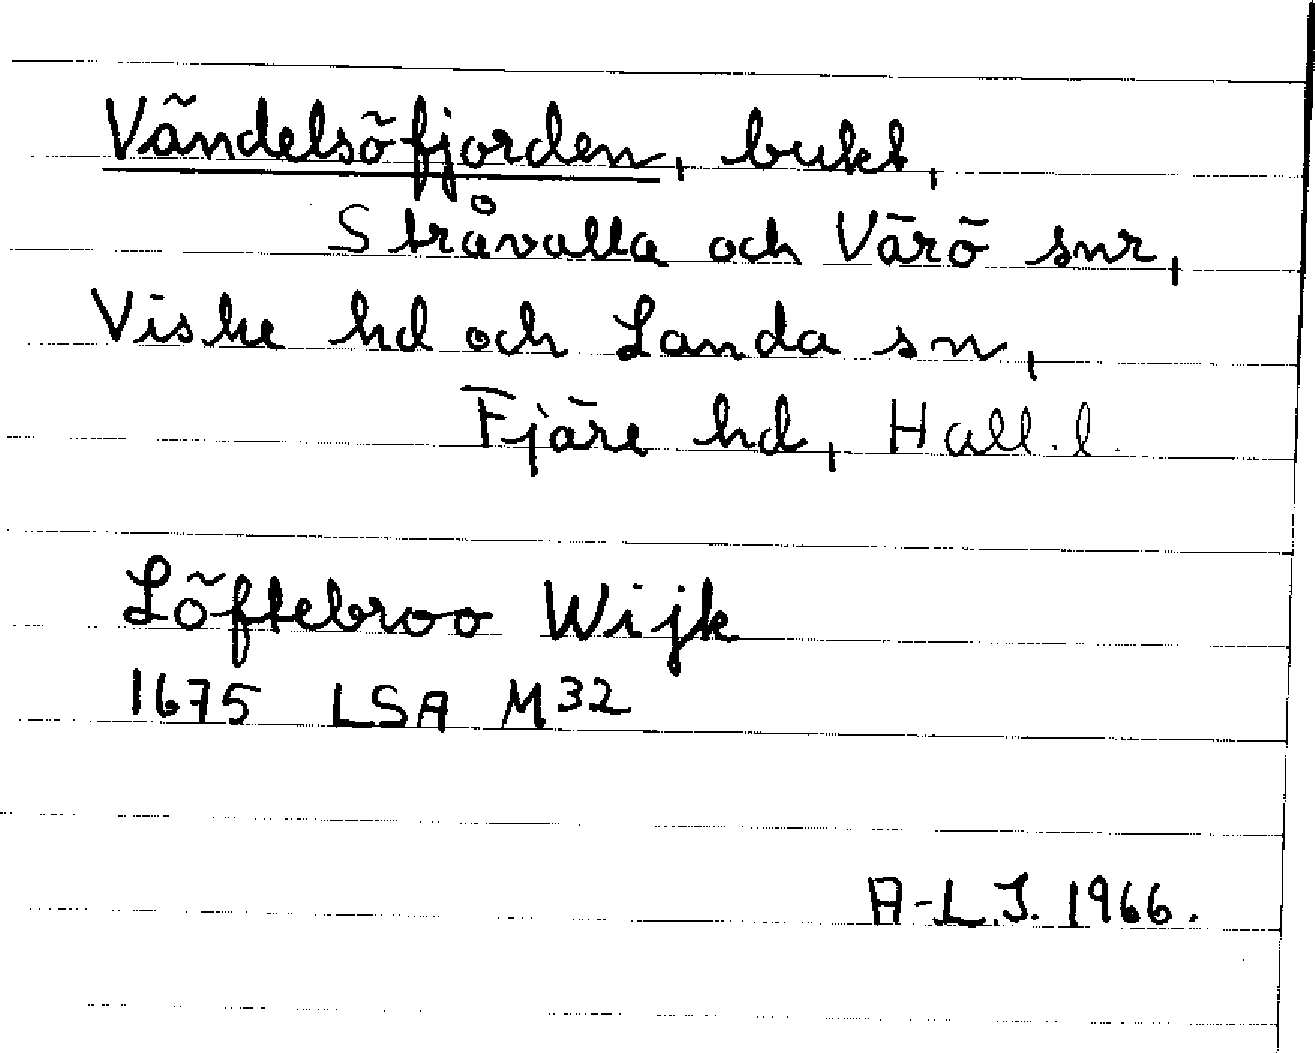 Vändelsöfjorden, bukt,
Stråvalla och Värö snr,
Viske hd och Landa sn,
Fjäre hd, Hall. l.
Löftebroo Wijk
1675 LSA M32
A-L.J. 1966.